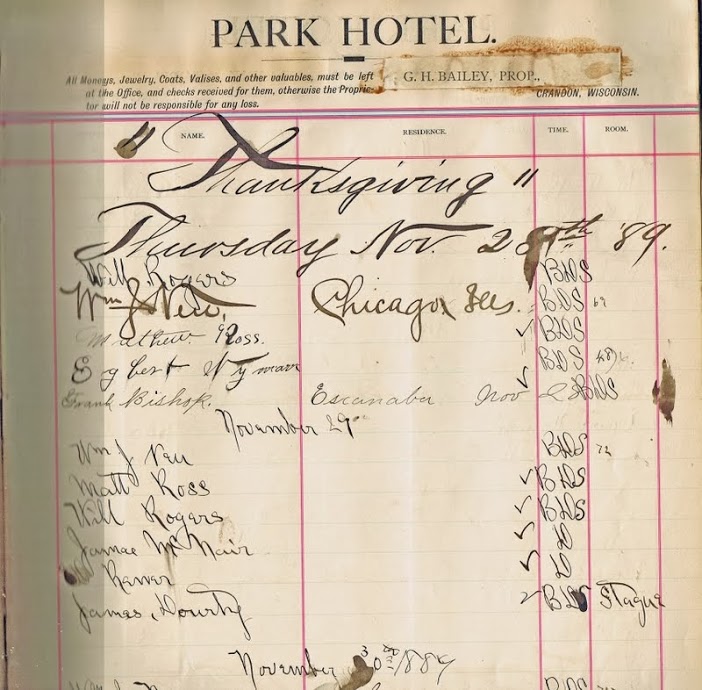 PARK HOTEL.
All Moneys, Jewelry, Coats, Valises, and other valuables, must be left
at the Office, and checks received for them, otherwise the Proprie-
tor will not be responsible for any loss.
G. H. BAILEY, PROP.,
CRANDON, WISCONSIN.
NAME. RESIDENCE. TIME. ROOM.
" Thanksgiving "
Thursday Nov. 28th '89.
Will Rogers BDS
Wm J. Neu, Chicago Ills. BDS
Mathew Ross. ✓ BDS
Egbert Wyman BDS
Frank Bishop. Escanaba Nov 28 ✓ BDS
November 29
Wm J. Neu BDS
Matt Ross ✓ BDS
Will Rogers ✓ BDS
James McNair ✓ D
✓ D
James, ✓ BDS Stague
November 30 1889